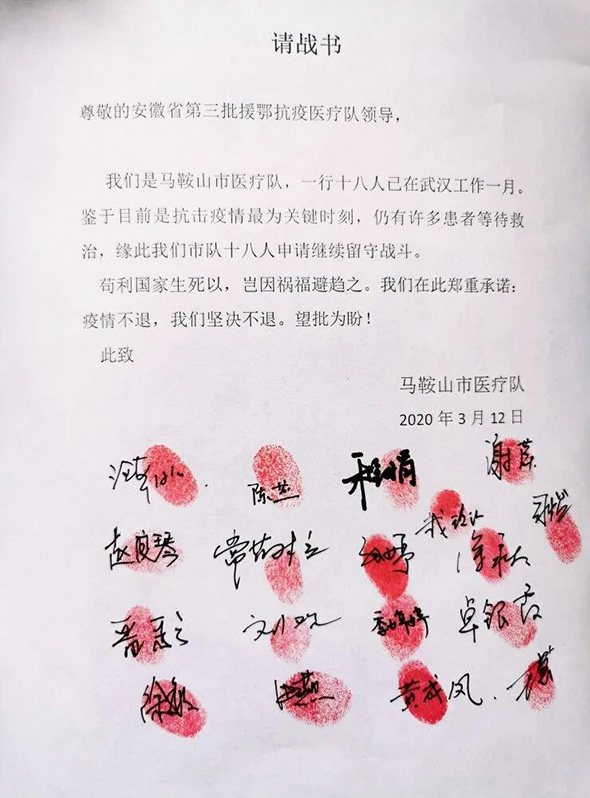 请战书
尊敬的安徽省第三批援鄂抗疫医疗队领导，
我们是马鞍山市医疗队，一行十八人已在武汉工作一月。
鉴于目前是抗击疫情最为关键时刻，仍有许多患者等待救
治，缘此我们市队十八人申请继续留守战斗。
苟利国家生死以，岂因祸福避趋之。我们在此郑重承诺：
疫情不退，我们坚决不退。望批为盼！
此致
马鞍山市医疗队
2020 年 3 月 12 日
陈燕 程娟 谢萍
赵良琴
卓银霞
黄成凤